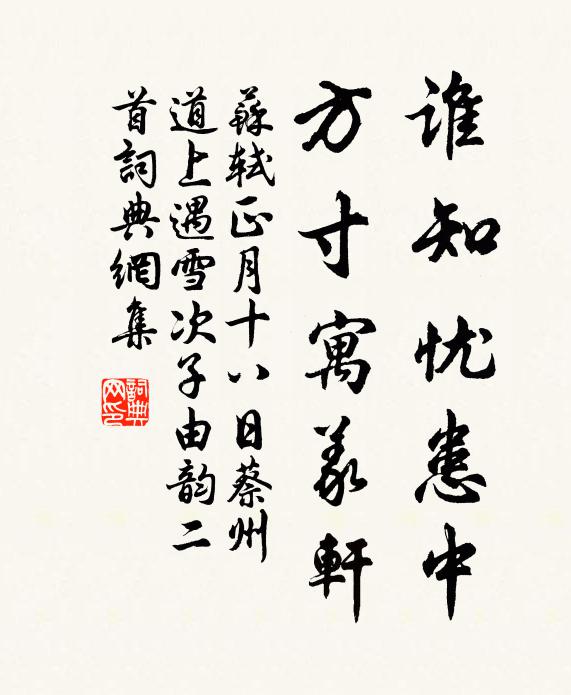 谁知忧患中
方寸寓羲軒
蘇軾正月十八日蔡州
道上遇雪次子由韵二
首詞典網集
詞典
网印